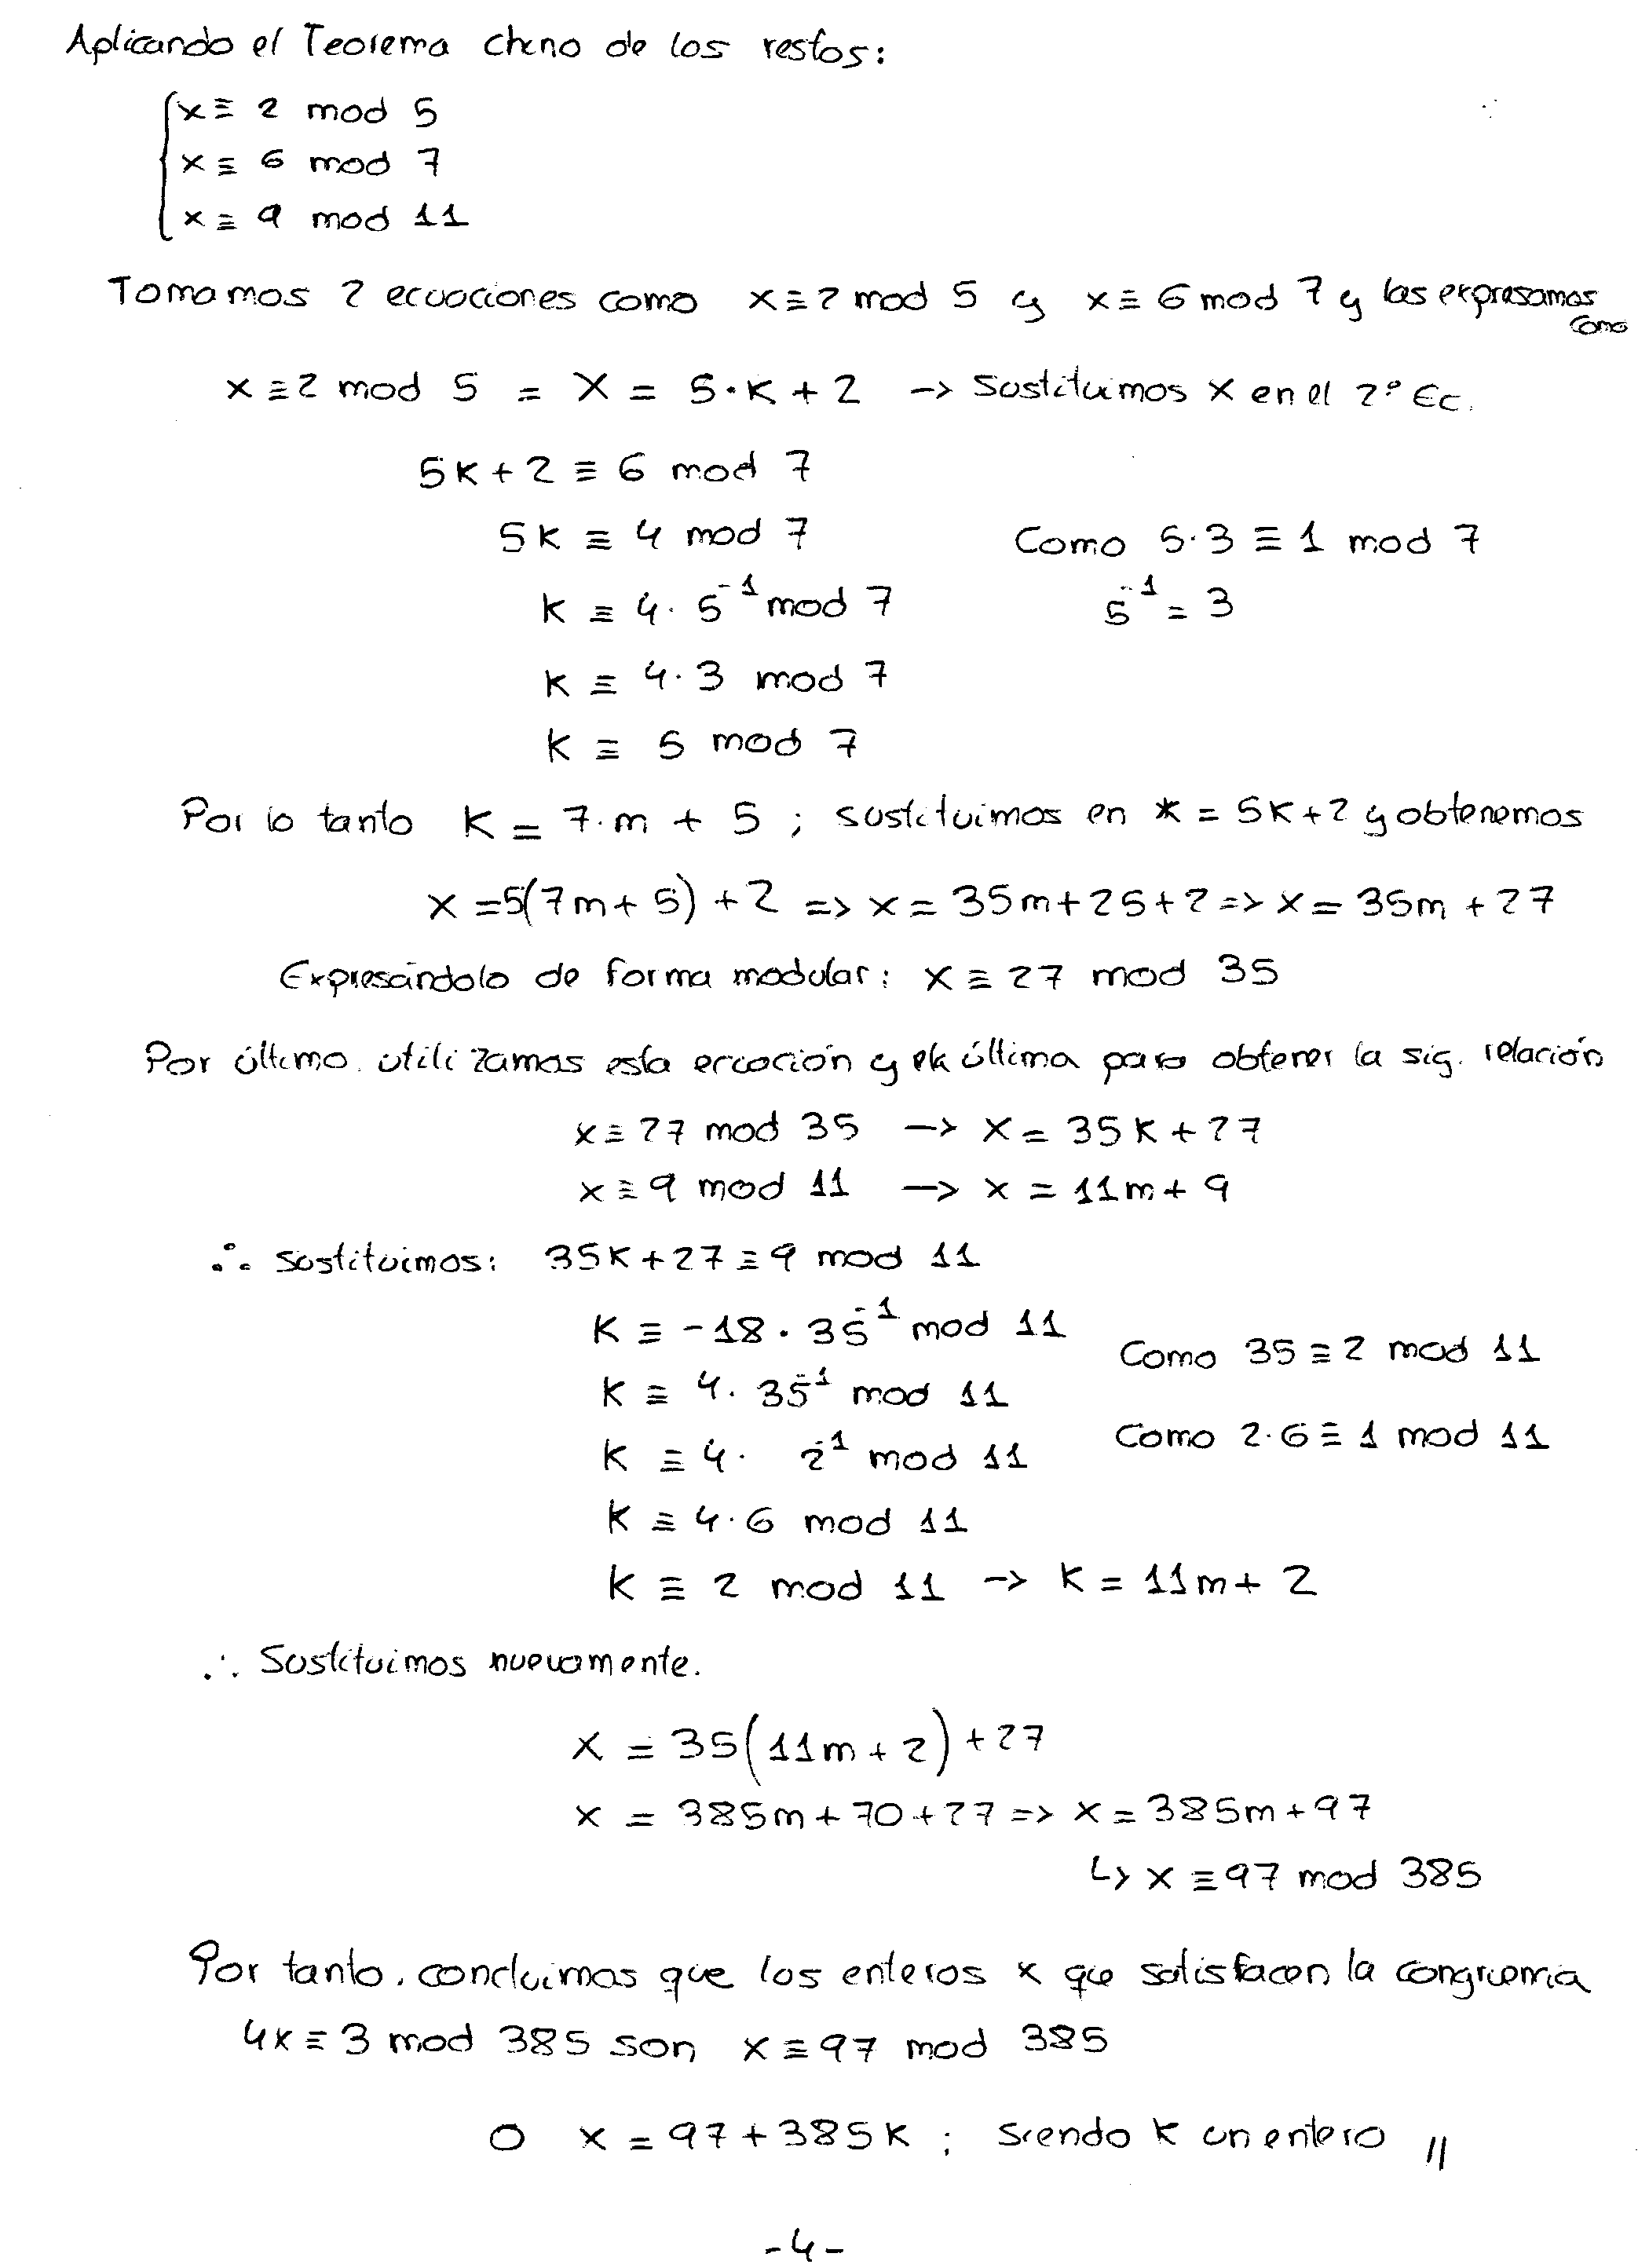 Aplicando el Teorema chino de los restos:
x ≡ 2 mod 5
x ≡ 6 mod 7
x ≡ 9 mod 11
Tomamos 2 ecuaciones como x ≡ 2 mod 5 y x ≡ 6 mod 7 y las expresamos como
x ≡ 2 mod 5 = X = 5·K + 2 -> Sustituimos X en el 2º Ec.
5K + 2 ≡ 6 mod 7
5K ≡ 4 mod 7 Como 5·3 ≡ 1 mod 7
K ≡ 4·5⁻¹ mod 7 5⁻¹ = 3
K ≡ 4·3 mod 7
K ≡ 5 mod 7
Por lo tanto K = 7·m + 5 ; sustituimos en x = 5K+2 y obtenemos
X = 5(7m + 5) + 2 => x = 35m + 25 + 2 => x = 35m + 27
Expresándolo de forma modular: x ≡ 27 mod 35
Por último, utilizamos esta ecuación y la última para obtener la sig. relación
x ≡ 27 mod 35 -> x = 35K + 27
x ≡ 9 mod 11 -> x = 11m + 9
∴ sustituimos: 35K + 27 ≡ 9 mod 11
K ≡ -18·35⁻¹ mod 11 Como 35 ≡ 2 mod 11
K ≡ 4·35⁻¹ mod 11
K ≡ 4· 2⁻¹ mod 11 Como 2·6 ≡ 1 mod 11
K ≡ 4·6 mod 11
K ≡ 2 mod 11 -> K = 11m + 2
∴ Sustituimos nuevamente.
X = 35(11m + 2) + 27
x = 385m + 70 + 27 => x = 385m + 97
↳ x ≡ 97 mod 385
Por tanto, concluimos que los enteros x que satisfacen la congruencia
4x ≡ 3 mod 385 son x ≡ 97 mod 385
O x = 97 + 385K ; siendo K un entero //
-4-